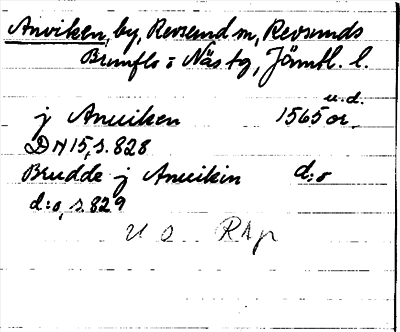 Anviken, by, Revsund sn, Revsunds
Brunflo o Näs tg, Jämtl. l.
j Anuiken 1565 or. u.d.
DN 15, s. 828
Brudde j Anuikin d:o
d:o, s. 829